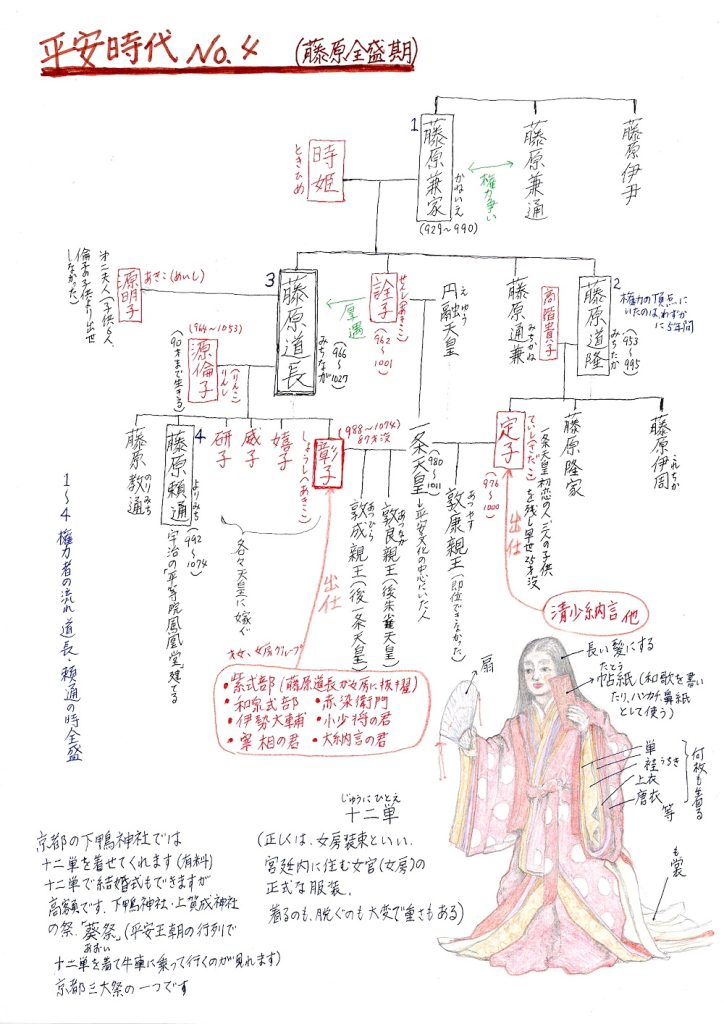 平安時代 No.4 (藤原全盛期)
藤原伊尹
藤原兼通
権力争い
1
藤原兼家
かねいえ
(929~990)
時姫
ときひめ
2
藤原道隆
みちたか
(953~995)
権力の頂点に
いたのはわずか
に5年間
高階貴子
藤原道兼
みちかね
円融天皇
えんゆう
詮子
せんし(あきこ)
(962~1001)
厚遇
3
藤原道長
みちなが
(966~1027)
源明子
あきこ(めいし)
第二夫人(子供6人、
倫子の子供より出世
しなかった)
(964~1053)
源倫子
(りんこ)
りんし
(90才まで生きる)
藤原伊周
これちか
藤原隆家
定子
ていし(さだこ)
(976~1000)
一条天皇初恋の人、三人の子供
を残し早世25才没
出仕
清少納言他
一条天皇
(980~1011)
平安文化の中心にいた人
敦康親王(即位できなかった)
あつやす
敦良親王(後朱雀天皇)
あつなが
敦成親王(後一条天皇)
あつひら
彰子
しょうし(あきこ)
(988~1074)
87才没
出仕
嬉子
威子
研子
各々天皇に嫁ぐ
4
藤原頼通
よりみち
(992~1074)
宇治の「平等院鳳凰堂」建てる
藤原教通
のりみち
1~4権力者の流れ 道長・頼通の時全盛
才女、女房グループ
•紫式部(藤原道長が女房に抜擢)
•和泉式部 •赤染衛門
•伊勢大輔 •小少将の君
•宰相の君 •大納言の君
扇
長い髪にする
たとう
帖紙(和歌を書い
たり、ハンカチ、鼻紙
として使う)
単
袿うちき
上衣
唐衣
等
何枚も着る
も
裳
じゅうにひとえ
十二単
(正しくは、女房装束といい、
宮廷内に住む女官(女房)の
正式な服装。
着るのも、脱ぐのも大変で重さもある)
京都の下鴨神社では
十二単を着せてくれます(有料)
十二単で結婚式もできますが
高額です、下鴨神社・上賀成神社
の祭、「葵祭」(平安王朝の行列で
あおい
十二単を着て牛車に乗って行くのが見れます)
京都三大祭の一つです